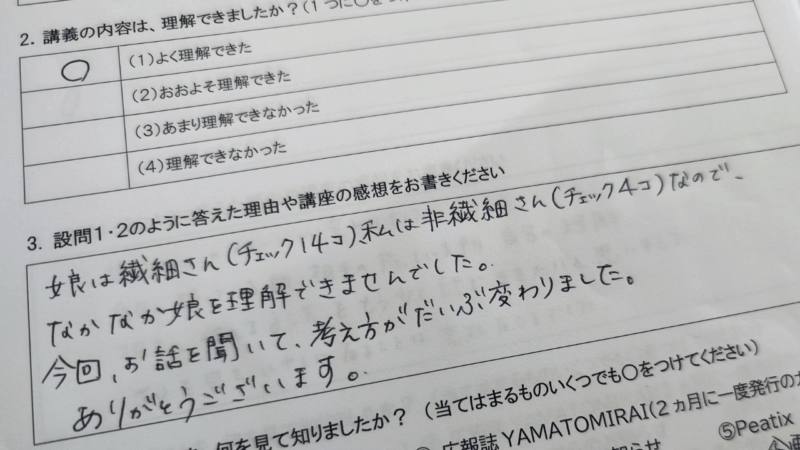 2. 講義の内容は、理解できましたか?(1つに〇を
〇
(1)よく理解できた
(2)おおよそ理解できた
(3)あまり理解できなかった
(4)理解できなかった
3. 設問1・2のように答えた理由や講座の感想をお書きください
娘は繊細さん(チェック14コ)私は非繊細さん(チェック4コ)なので、
なかなか娘を理解できませんでした。
今回、お話を聞いて、考え方がだいぶ変わりました。
ありがとうございます。
何を見て知りましたか? (当てはまるものいくつでも〇をつけてください)
広報誌 YAMATOMIRAI(2ヵ月に一度発行の
⑤Peatix